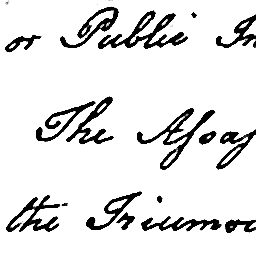 or Public In
The Assay
the Triumou